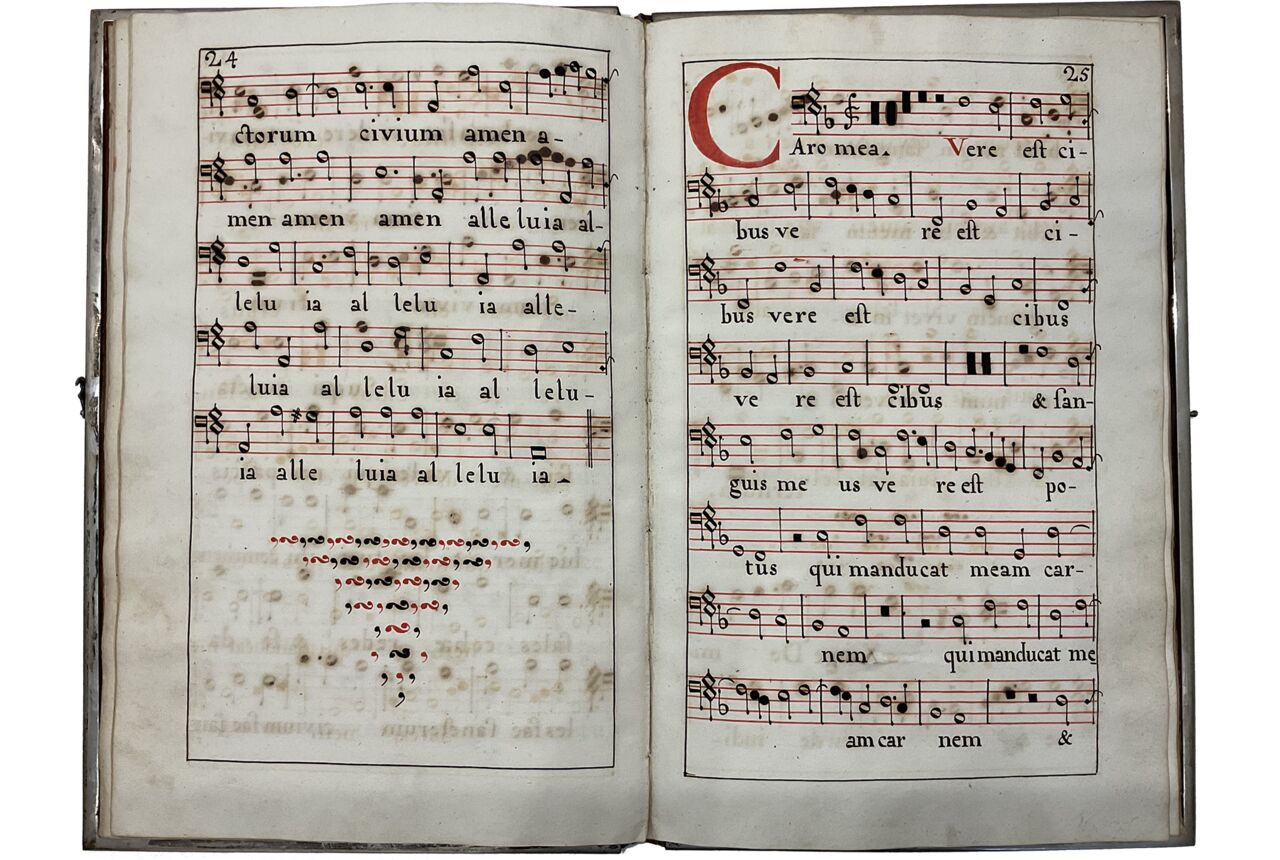 24
ctorum civium amen a-
men amen amen alle luia al-
lelu ia al lelu ia alle-
luia al lelu ia al lelu-
ia alle luia al lelu ia
25
CAro mea. Vere est ci-
bus ve re est ci-
bus vere est cibus
ve re est cibus & san-
guis me us ve re est po-
tus qui manducat meam car-
nem qui manducat me
am car nem &